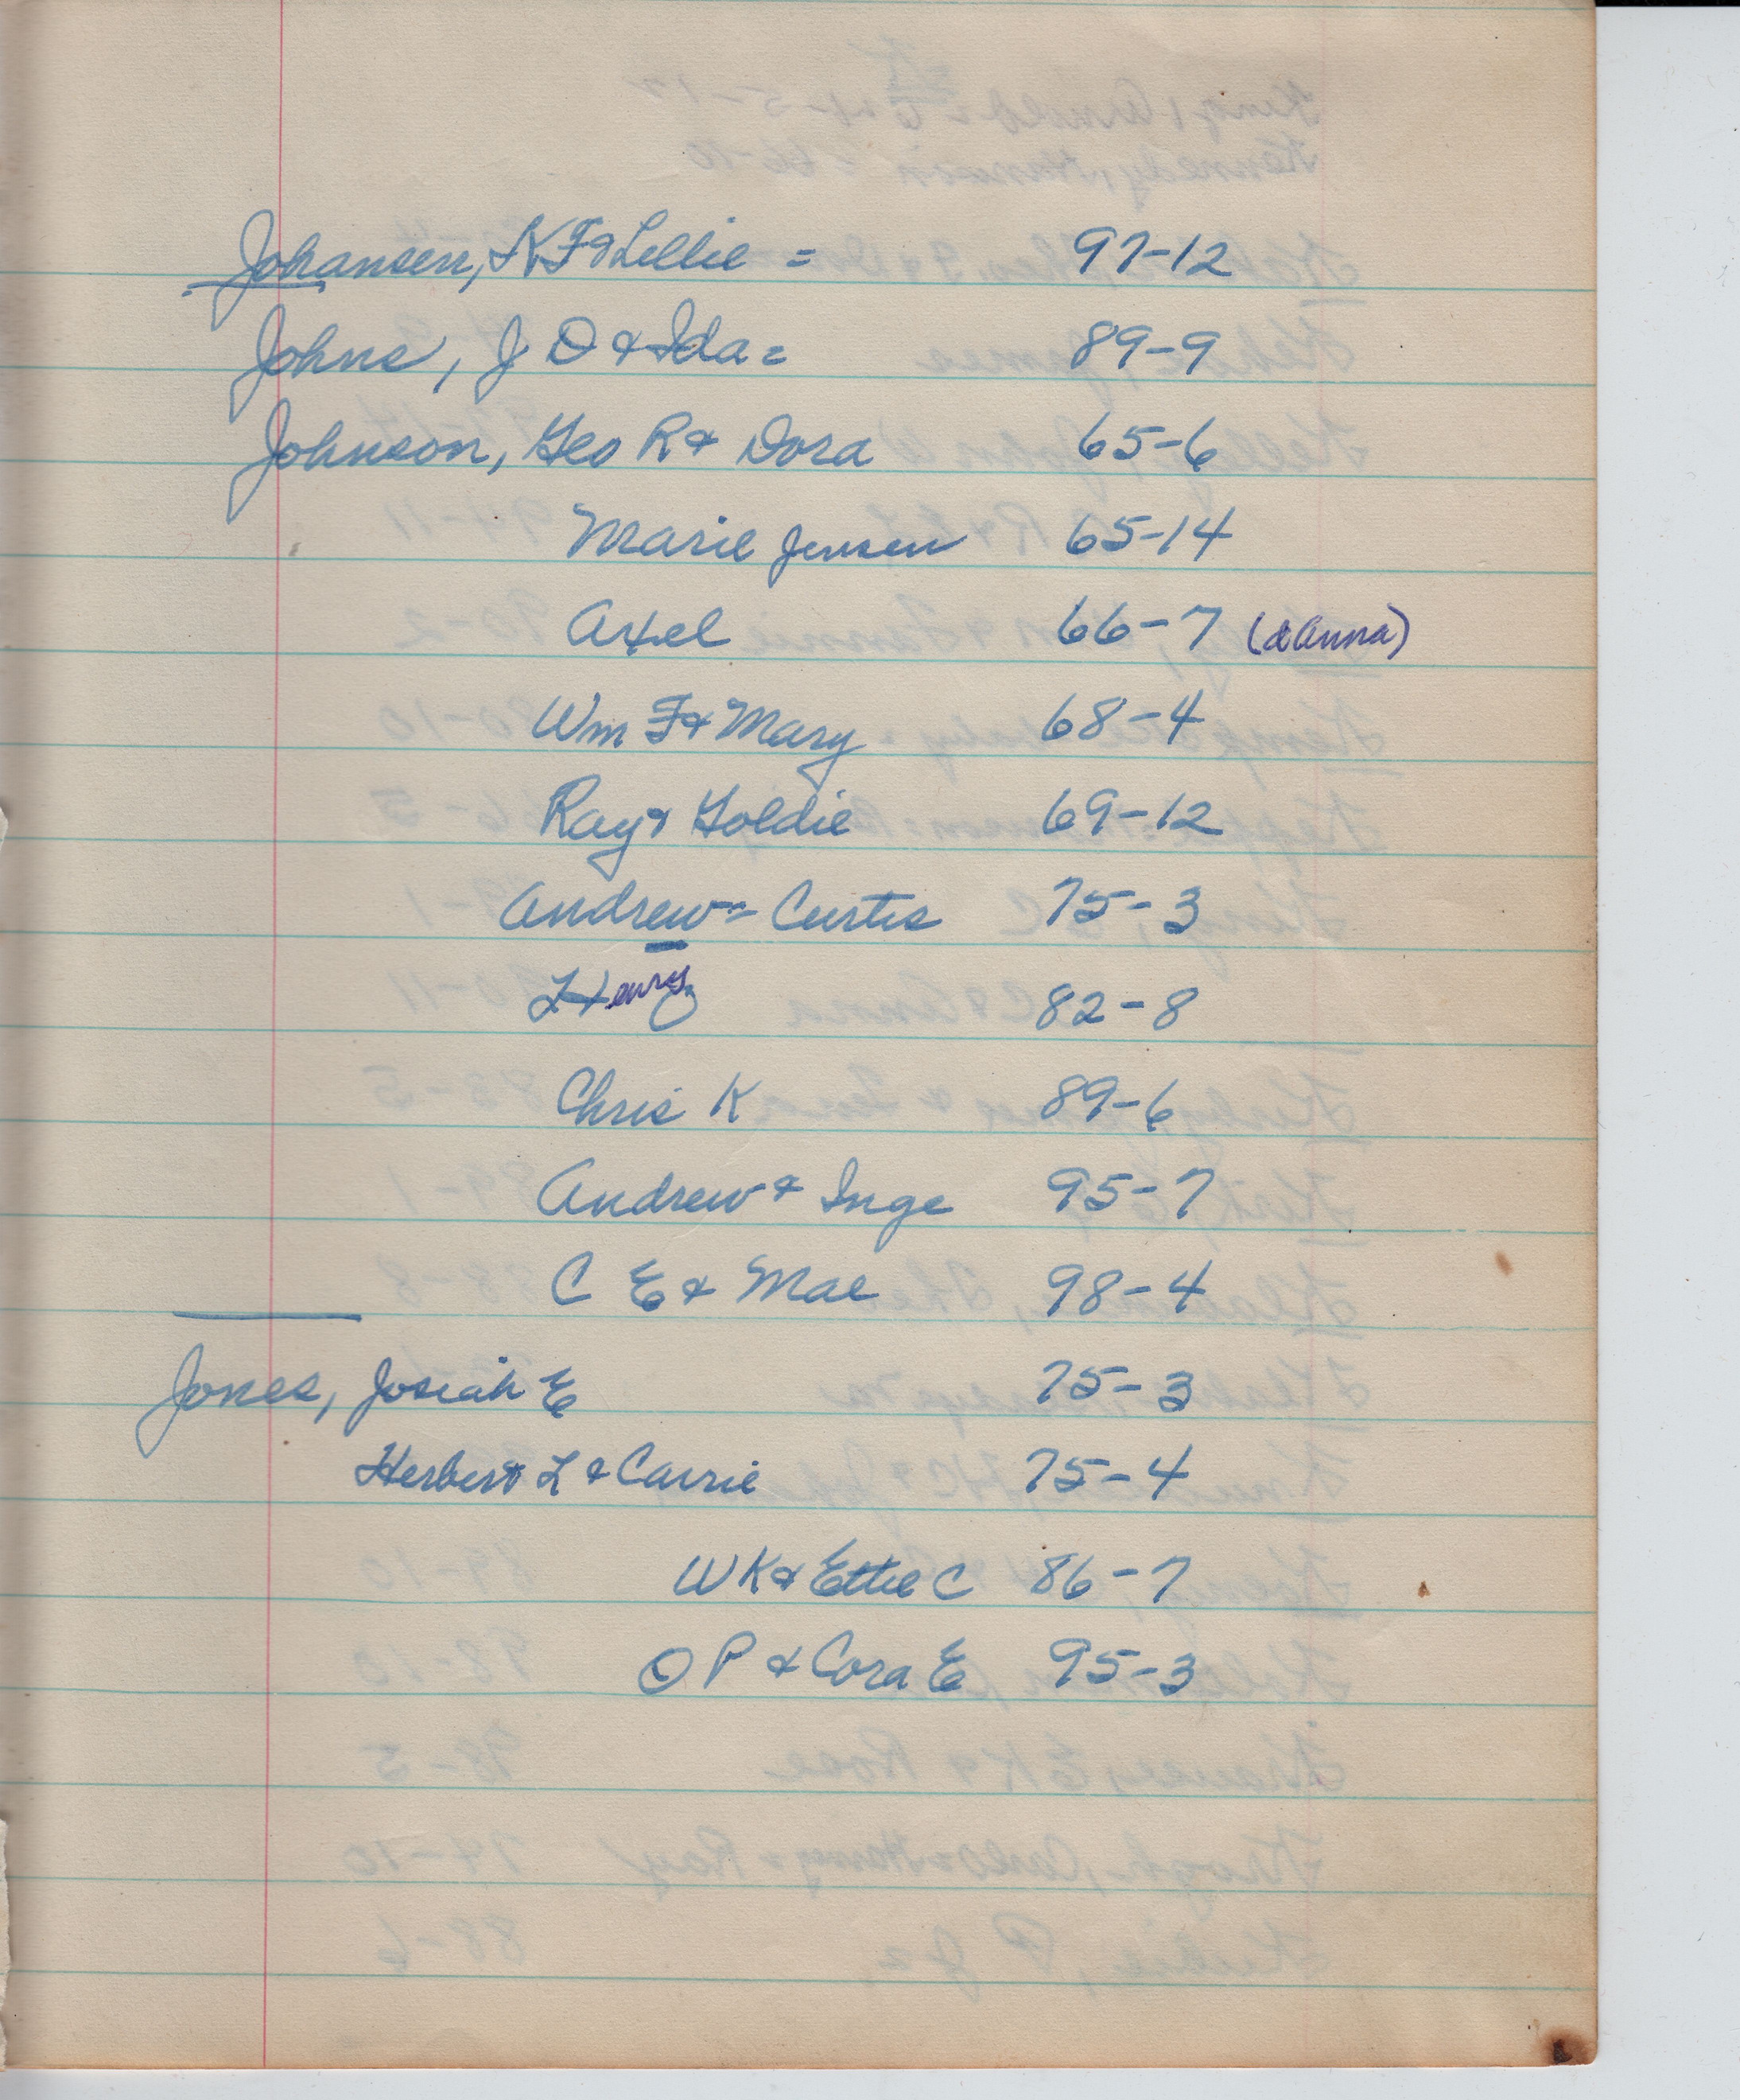 Johansen, K F & Lellie = 97-12
Johns, J D & Ida = 89-9
Johnson, Geo R & Dora 65-6
Marie Jensen 65-14
Axel 66-7 (& Anna)
Wm F & Mary 68-4
Ray & Goldie 69-12
Andrew = Curtis 75-3
Henry 82-8
Chris K 89-6
Andrew & Inge 95-7
C E & Mae 98-4
Jones, Josiah E 75-3
Herbert L & Carrie 75-4
W K & Ettie C 86-7
O P & Cora E 95-3